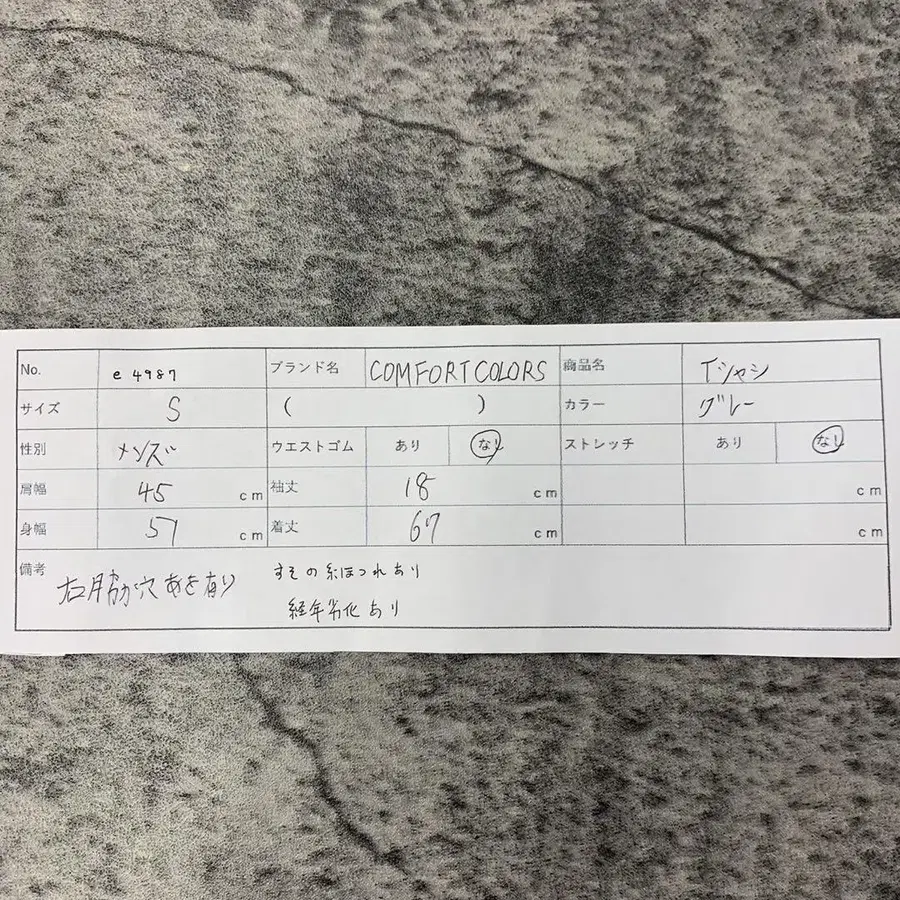 No. e4987 ブランド名 COMFORT COLORS 商品名 Tシャシ
サイズ S ( ) カラー グレー
性別 メンズ ウエストゴム あり なし ストレッチ あり なし
肩幅 45 cm 袖丈 18 cm cm
身幅 51 cm 着丈 67 cm cm
備考 すその糸ほつれあり
右脇が穴あき有り
経年劣化あり